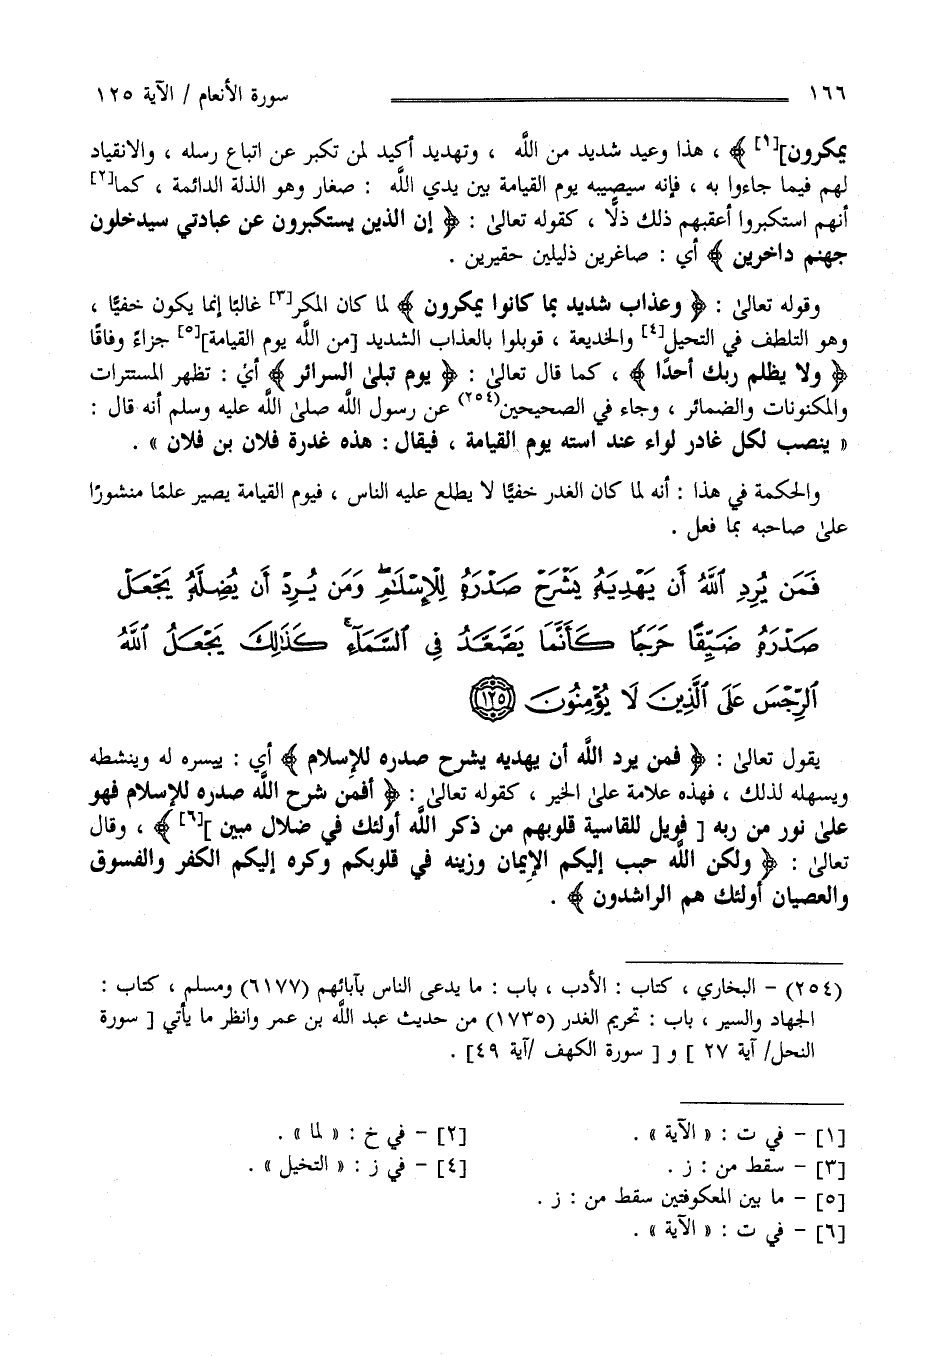 ١٦٦ سورة الأنعام / الآية ١٢٥
يمكرون][١] ﴾ ، هذا وعيد شديد من اللَّه ، وتهديد أكيد لمن تكبر عن اتباع رسله ، والانقياد
لهم فيما جاءوا به ، فإنه سيصيبه يوم القيامة بين يدي اللَّه : صغار وهو الذلة الدائمة ، كما[٢]
أنهم استكبروا أعقبهم ذلك ذلًّا ، كقوله تعالىٰ : ﴿ إن الذين يستكبرون عن عبادتي سيدخلون
جهنم داخرين ﴾ أي : صاغرين ذليلين حقيرين .
وقوله تعالىٰ : ﴿ وعذاب شديد بما كانوا يمكرون ﴾ لما كان المكر[٣] غالبًا إنما يكون خفيًّا ،
وهو التلطف في التحيل[٤] والخديعة ، قوبلوا بالعذاب الشديد [من اللَّه يوم القيامة][٥] جزاءً وفاقًا
﴿ ولا يظلم ربك أحدًا ﴾ ، كما قال تعالىٰ : ﴿ يوم تبلىٰ السرائر ﴾ أي : تظهر المستترات
والمكنونات والضمائر ، وجاء في الصحيحين(٢٥٤) عن رسول اللَّه صلىٰ اللَّه عليه وسلم أنه قال :
« ينصب لكل غادر لواء عند استه يوم القيامة ، فيقال : هذه غدرة فلان بن فلان » .
والحكمة في هذا : أنه لما كان الغدر خفيًّا لا يطلع عليه الناس ، فيوم القيامة يصير علمًا منشورًا
علىٰ صاحبه بما فعل .
فَمَن يُرِدِ ٱللَّهُ أَن يَهْدِيَهُۥ يَشْرَحْ صَدْرَهُۥ لِلْإِسْلَٰمِ ۖ وَمَن يُرِدْ أَن يُضِلَّهُۥ يَجْعَلْ
صَدْرَهُۥ ضَيِّقًا حَرَجًا كَأَنَّمَا يَصَّعَّدُ فِى ٱلسَّمَآءِ ۚ كَذَٰلِكَ يَجْعَلُ ٱللَّهُ
ٱلرِّجْسَ عَلَى ٱلَّذِينَ لَا يُؤْمِنُونَ ١٢٥
يقول تعالىٰ : ﴿ فمن يرد اللَّه أن يهديه يشرح صدره للإسلام ﴾ أي : ييسره له وينشطه
ويسهله لذلك ، فهذه علامة علىٰ الخير ، كقوله تعالىٰ : ﴿ أفمن شرح اللَّه صدره للإسلام فهو
علىٰ نور من ربه [ فويل للقاسية قلوبهم من ذكر اللَّه أولئك في ضلال مبين ][٦] ﴾ ، وقال
تعالىٰ : ﴿ ولكن اللَّه حبب إليكم الإيمان وزينه في قلوبكم وكره إليكم الكفر والفسوق
والعصيان أولئك هم الراشدون ﴾ .
(٢٥٤) – البخاري ، كتاب : الأدب ، باب : ما يدعى الناس بآبائهم (٦١٧٧) ومسلم ، كتاب :
الجهاد والسير ، باب : تحريم الغدر (١٧٣٥) من حديث عبد اللَّه بن عمر وانظر ما يأتي [ سورة
النحل/ آية ٢٧ ] و [ سورة الكهف /آية ٤٩] .
[١] – في ت : « الآية » . [٢] – في خ : « لما » .
[٣] – سقط من : ز . [٤] – في ز : « التخيل » .
[٥] – ما بين المعكوفتين سقط من : ز .
[٦] – في ت : « الآية » .